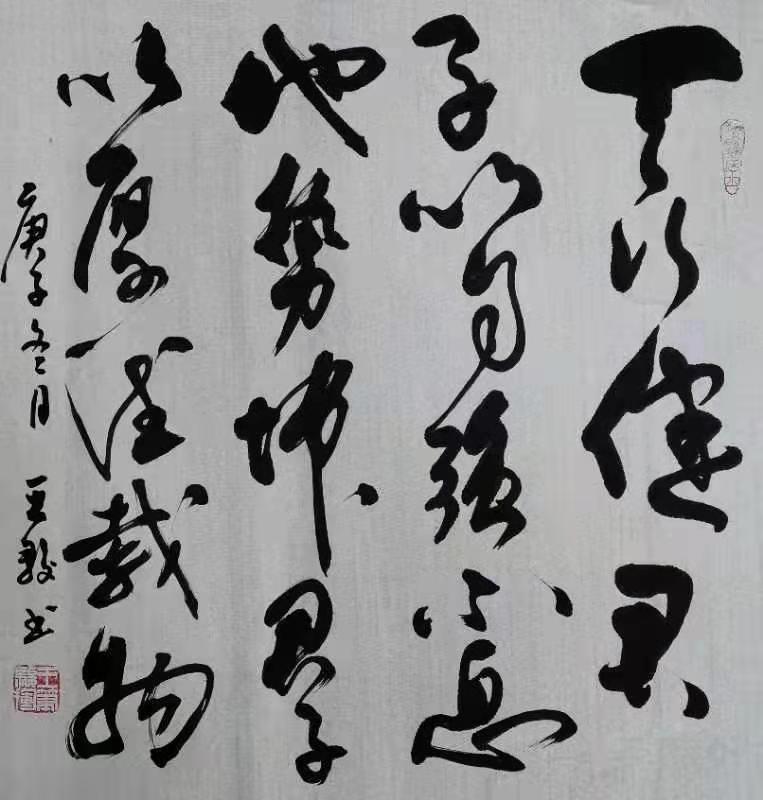 天行健君
子以自强不息
地势坤君子
以厚德载物
庚子冬月 王毅书